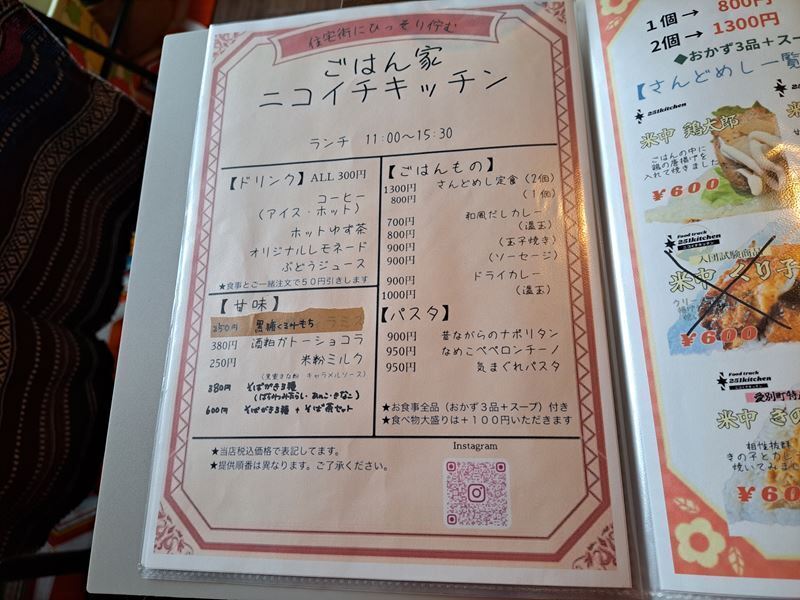 住宅街にひっそり佇む
ごはん家
ニコイチキッチン
ランチ 11:00～15:30
【ドリンク】 ALL 300円
コーヒー
（アイス・ホット）
ホットゆず茶
オリジナルレモネード
ぶどうジュース
★食事とご一緒注文で５０円引きします
【甘味】
350円 黒糖くるみもち
380円 酒粕ガトーショコラ
250円 米粉ミルク
（黒蜜きな粉 キャラメルソース）
380円 そばがき3種
600円 そばがき3種 + そば茶セット
【ごはんもの】
1300円 さんどめし定食（2個）
800円 （1個）
700円 和風だしカレー
800円 （温玉）
900円 （玉子焼き）
900円 （ソーセージ）
900円 ドライカレー
1000円 （温玉）
【パスタ】
900円 昔ながらのナポリタン
950円 なめこペペロンチーノ
950円 気まぐれパスタ
★お食事全品（おかず３品＋スープ）付き
★食べ物大盛りは＋１００円いただきます
★当店税込価格で表記してます。
★提供順番は異なります。ご了承ください。
Instagram
1個→ 800円
2個→ 1300円
◆おかず3品＋スー
【さんどめし一覧
251kitchen
米中 鶏太郎
ごはんの中に
鶏の唐揚げを
入れて焼きました
¥900
Food truck
251kitchen
ニコイチキッチン
米中 くり子
¥900
Food truck
251kitchen
ニコイチキッチン
愛別町特産
米中 きの
相性抜群
きの子とカレ
焼いてみま
¥900